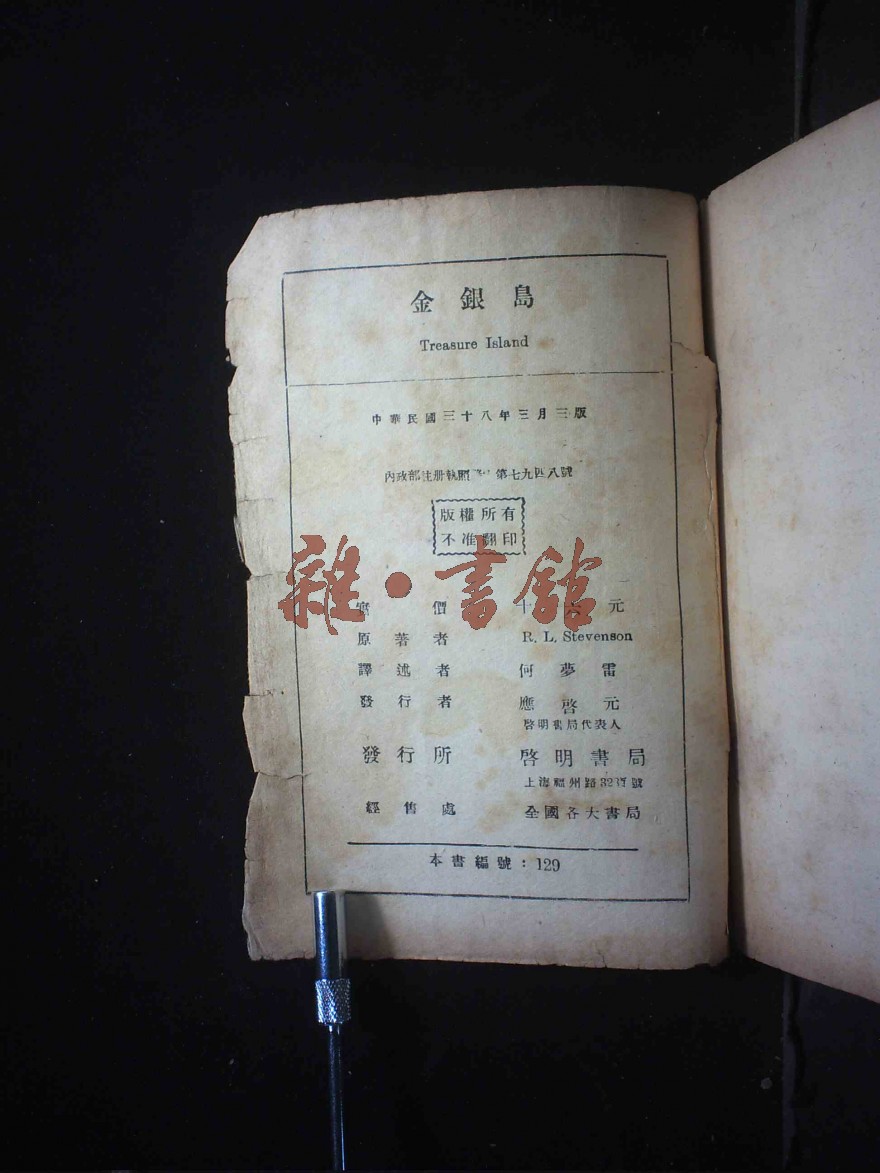 金銀島
Treasure Island
中華民國三十八年三月三版
內政部註册執照 第七九四八號
版權所有
不准翻印
雜·書館
實價 十六元
原著者 R. L. Stevenson
譯述者 何夢雷
發行者 應啓元
啓明書局代表人
發行所 啓明書局
上海福州路號
經售處 全國各大書局
本書編號：129